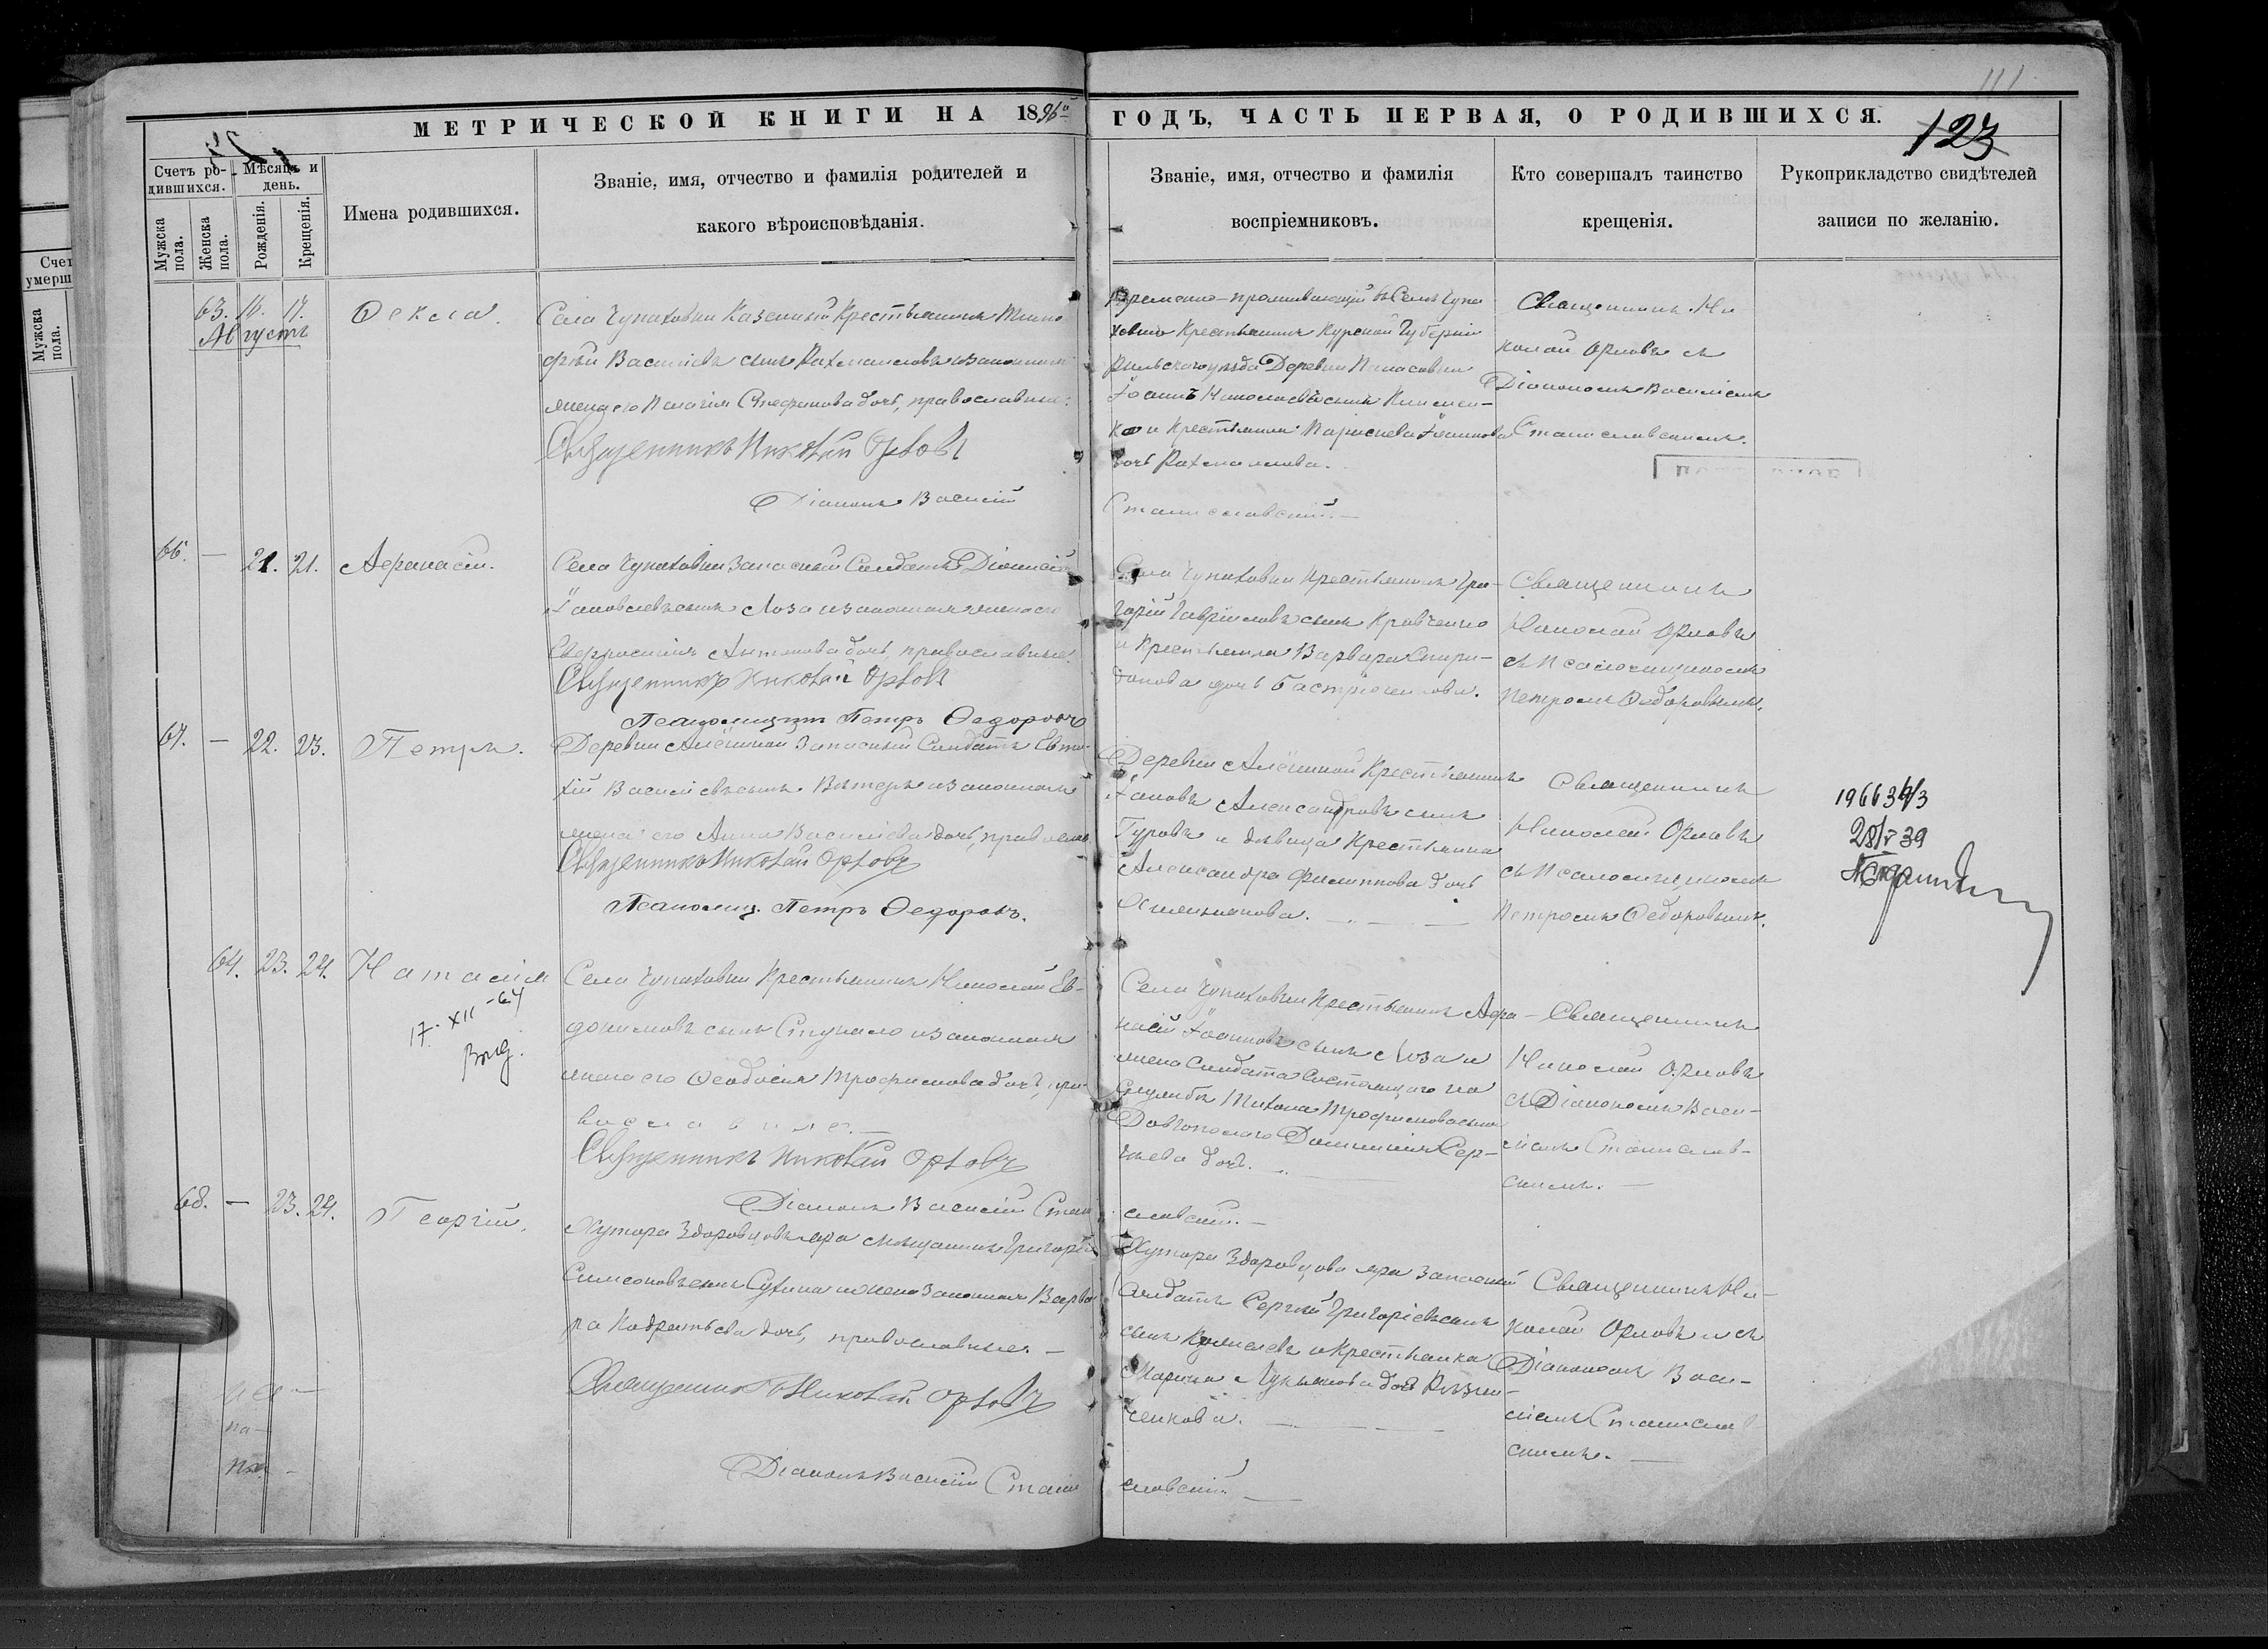 111
МЕТРИЧЕСКОЙ КНИГИ НА 1896й ГОДЪ, ЧАСТЬ ПЕРВАЯ, О РОДИВШИХСЯ.
123
Счетъ ро-
дившихся.
Мужска пола.
Женска пола.
Мѣсяцъ и
день.
Рожденія.
Крещенія.
Имена родившихся.
Званіе, имя, отчество и фамилія родителей и
какого вѣроисповѣданія.
Званіе, имя, отчество и фамилія
воспріемниковъ.
Кто совершалъ таинство
крещенія.
Рукоприкладство свидѣтелей
записи по желанію.
Счет
умерш
Мужска пола.
63. 16. 17. Ѳекла.
Августъ
Села Чупаховки Казенный Крестьянинъ
Василіевъ сынъ и законная
жена его Пелагія Стефанова дочь, православные.
Священникъ Николай Орловъ
Діаконъ Василій
Временно-проживающій въ Селѣ Чупа-
ховкѣ Крестьянинъ Курской Губерніи
Рыльского уѣзда Деревни
Іоаннъ Николаевъ сынъ Климен-
ко и Крестьянка Іоаннова
дочь
Станиславскій.
Священникъ Ни-
колай Орловъ съ
Діакономъ Василіемъ
Станиславскимъ.
66. — 21. 21. Афанасій.
Села Чупаховки Запасный Солдатъ Діонисій
Іаковлевъ сынъ Лоза и законная жена его
Евфросинія Антонова дочь, православные.
Священникъ Николай Орловъ
Псаломщикъ Петръ Ѳедоровъ
Села Чупаховки Крестьянинъ Гри-
горій Гавріиловъ сынъ Кравченко
и Крестьянка Варвара Спири-
донова дочь
Священникъ
Николай Орловъ
съ Псаломщикомъ
Петромъ Ѳедоровымъ.
67. — 22. 23. Петръ.
Деревни Алёшной Запасный Солдатъ Евти-
хій Василіевъ сынъ и законная
жена его Анна Василіева дочь, православ.
Священникъ Николай Орловъ
Псаломщ. Петръ Ѳедоровъ.
Деревни Алёшной Крестьянинъ
Іаковъ Александровъ сынъ
Гуровъ и дѣвица Крестьянка
Александра Филиппова дочь
Священникъ
Николай Орловъ
съ Псаломщикомъ
Петромъ Ѳедоровымъ.
28/V 39
64. 23. 24. Наталія
17-XII-64
Села Чупаховки Крестьянинъ Николай Ев-
докимовъ сынъ Ступало и законная
жена его Ѳеодосія Трофимова дочь, пра-
вославные.—
Священникъ Николай Орловъ
Діаконъ Василій Стани
Села Чупаховки Крестьянинъ Афа-
насій Іоанновъ сынъ Лоза и
жена Солдата Состоящаго на
Службѣ Тихона Трофимова сына
Довгополого Домникія Сер-
гіева дочь.
славскій.—
Священникъ
Николай Орловъ
съ Діакономъ Васи-
ліемъ Станислав-
скимъ.—
68. — 23. 24. Георгій.
Хутора Здоровцова яра мѣщанинъ Григорій
Симеоновъ сынъ и жена законная Варва-
ра Кодратьева дочь, православные.—
Священникъ Николай Орловъ
Діаконъ Василій Стани
Хутора Здоровцова яра Запасный
Солдатъ Сергій Григоріевъ сынъ
сынъ и Крестьянка
Марина Лукьянова дочь
ченкова.
славскій.—
Священникъ Ни-
колай Орловъ и съ
Діакономъ Васи-
ліемъ Станислав
скимъ.—